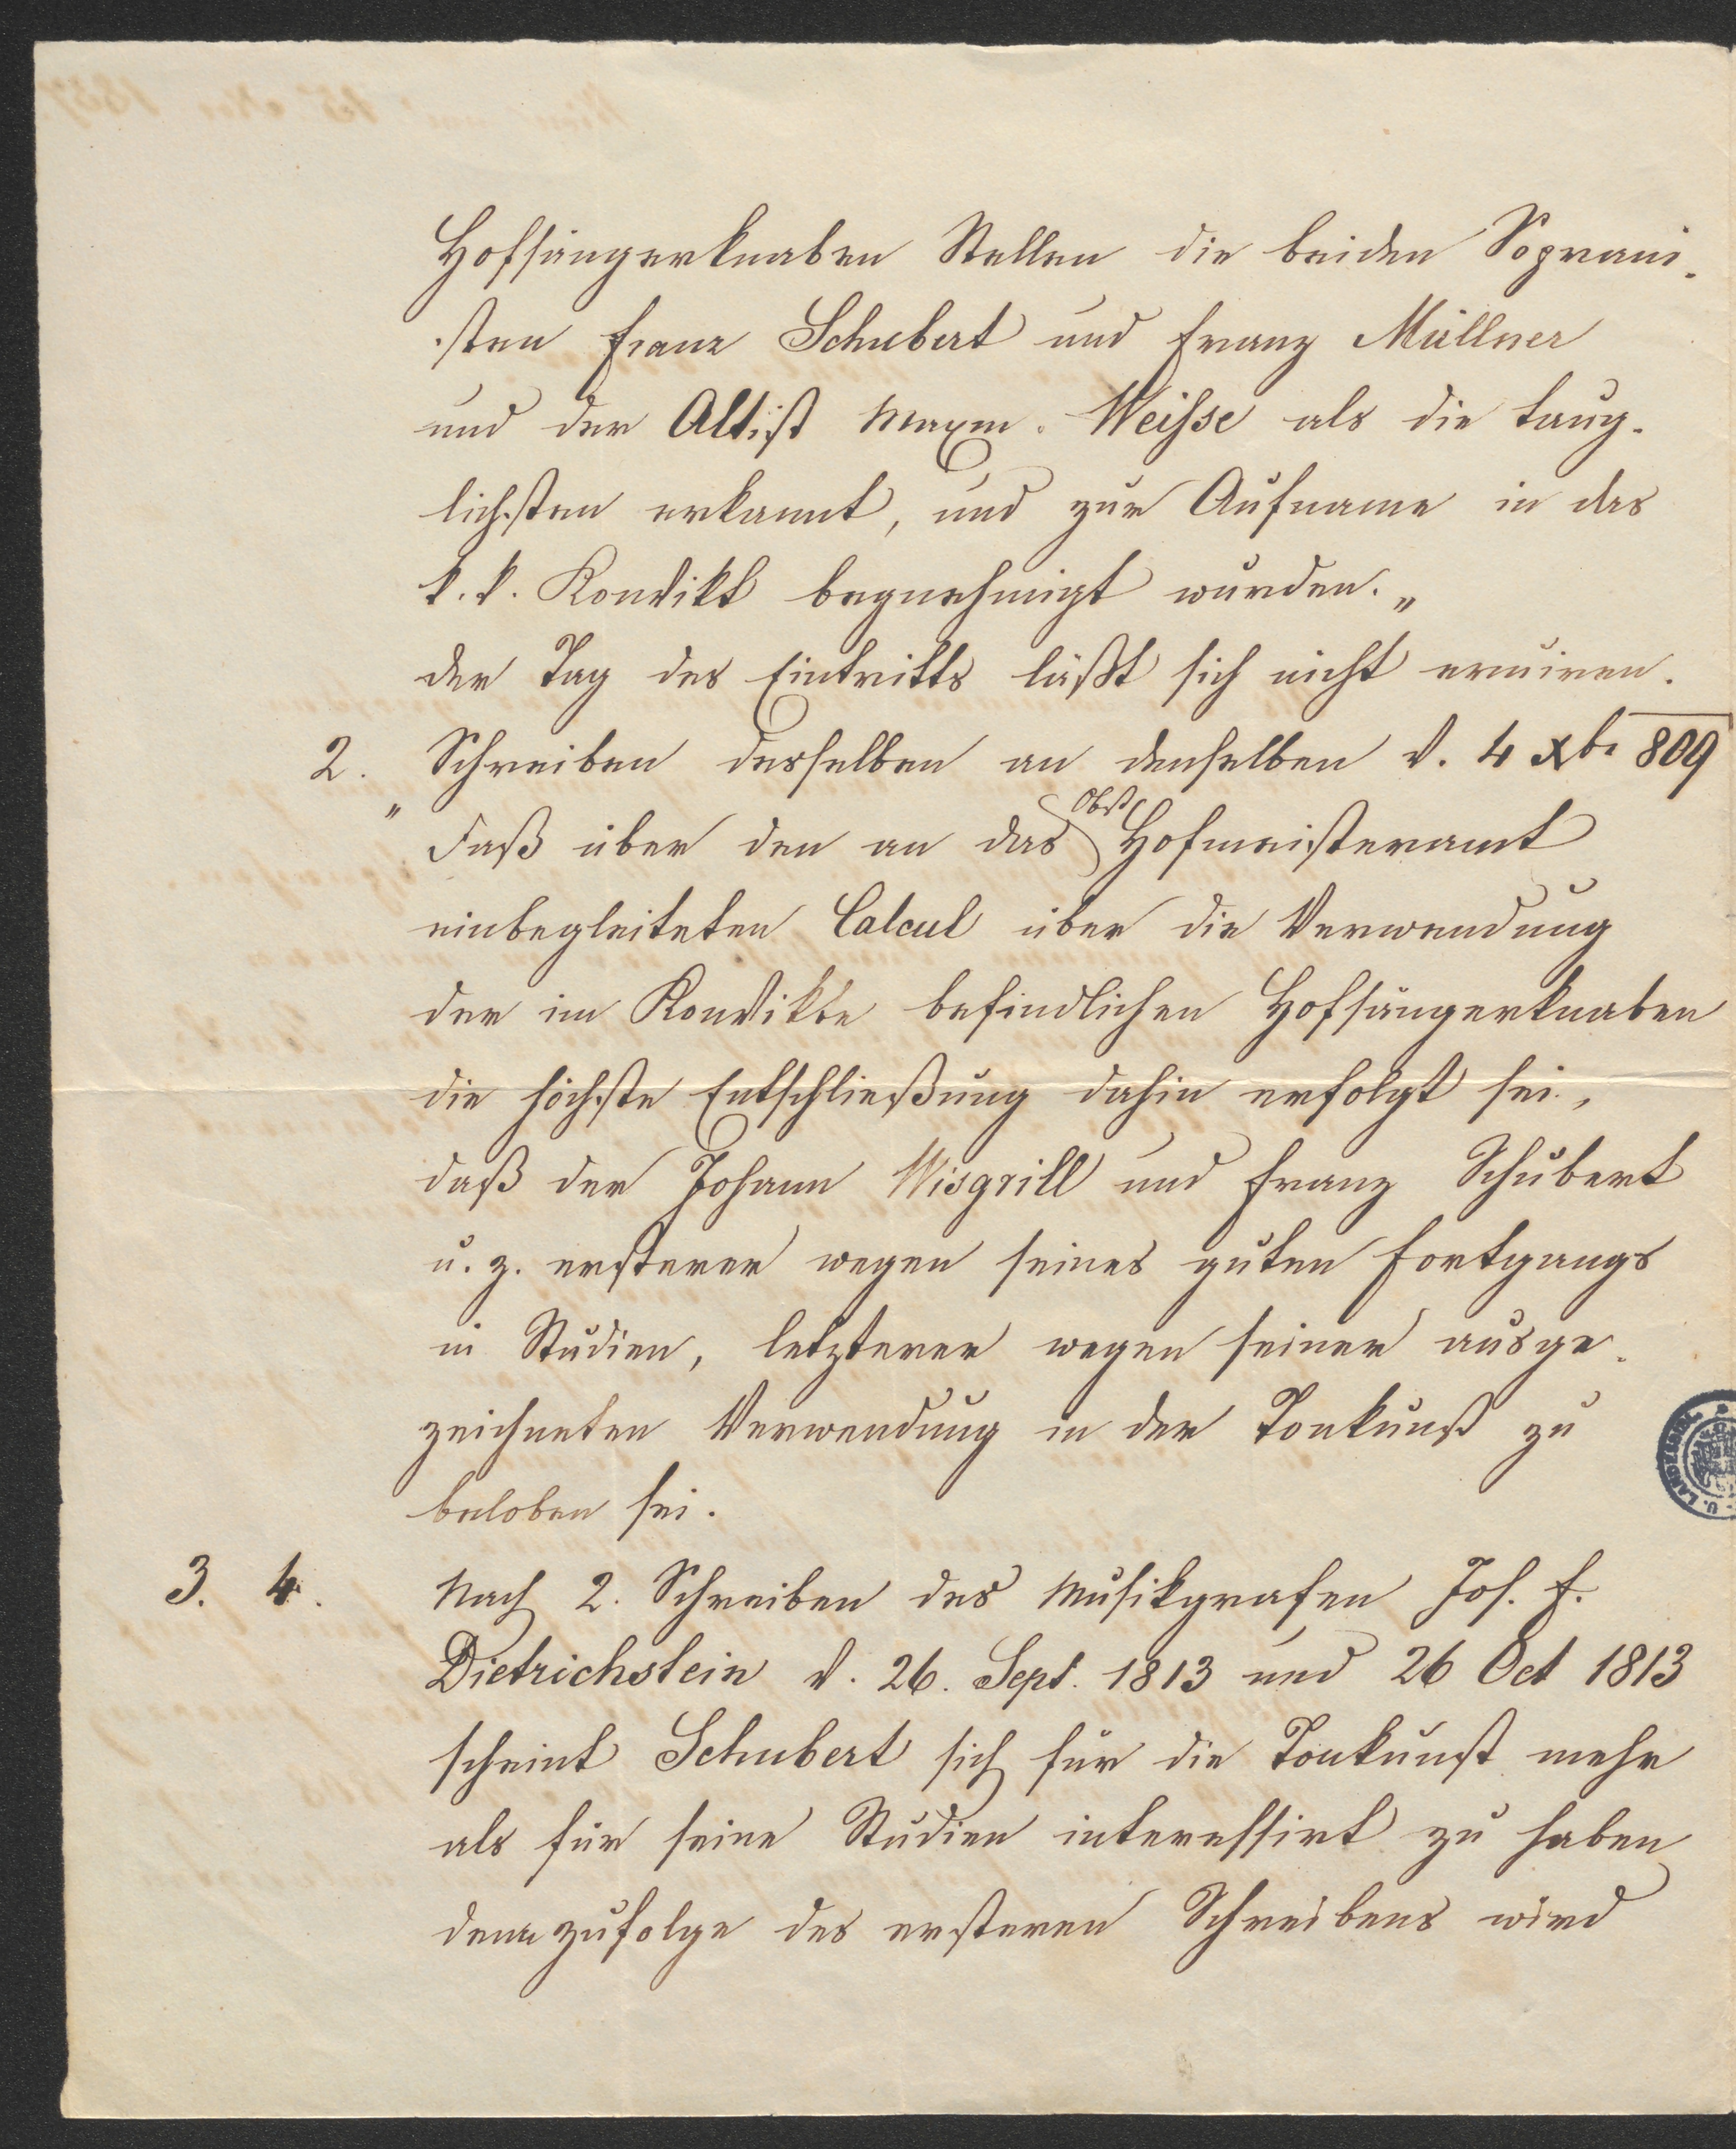 Hofsängerknaben Stellen die beiden Soprani-
sten Franz Schubert und Franz Müllner
und der Altist Maxm. Weisse als die taug-
lichsten erkannt, und zur Aufname in das
k. k. Konvikt begnehmigt wurden."
der Tag des Eintritts läßt sich nicht eruiren.
2. Schreiben desselben an denselben d. 4 Xbr 809
"Daß über den an das Obst Hofmeisteramt
einbegleiteten Calcul über die Verwendung
der im Konvikte befindlichen Hofsängerknaben
die höchste Entschließung dahin erfolgt sei,
daß der Johann Wisgrill und Franz Schubert
u. z. ersterer wegen seines guten Fortgangs
in Studien, letzterer wegen seiner ausge-
zeichneten Verwendung in der Tonkunst zu
beloben sei.
3. 4. Nach 2. Schreiben des Musikgrafen Jos. F.
Dietrichstein d. 26. Sept. 1813 und 26 Oct 1813
scheint Schubert sich für die Tonkunst mehr
als für seine Studien interessirt zu haben
denn zufolge des ersteren Schreibens wird
U. LANDESBIBL.